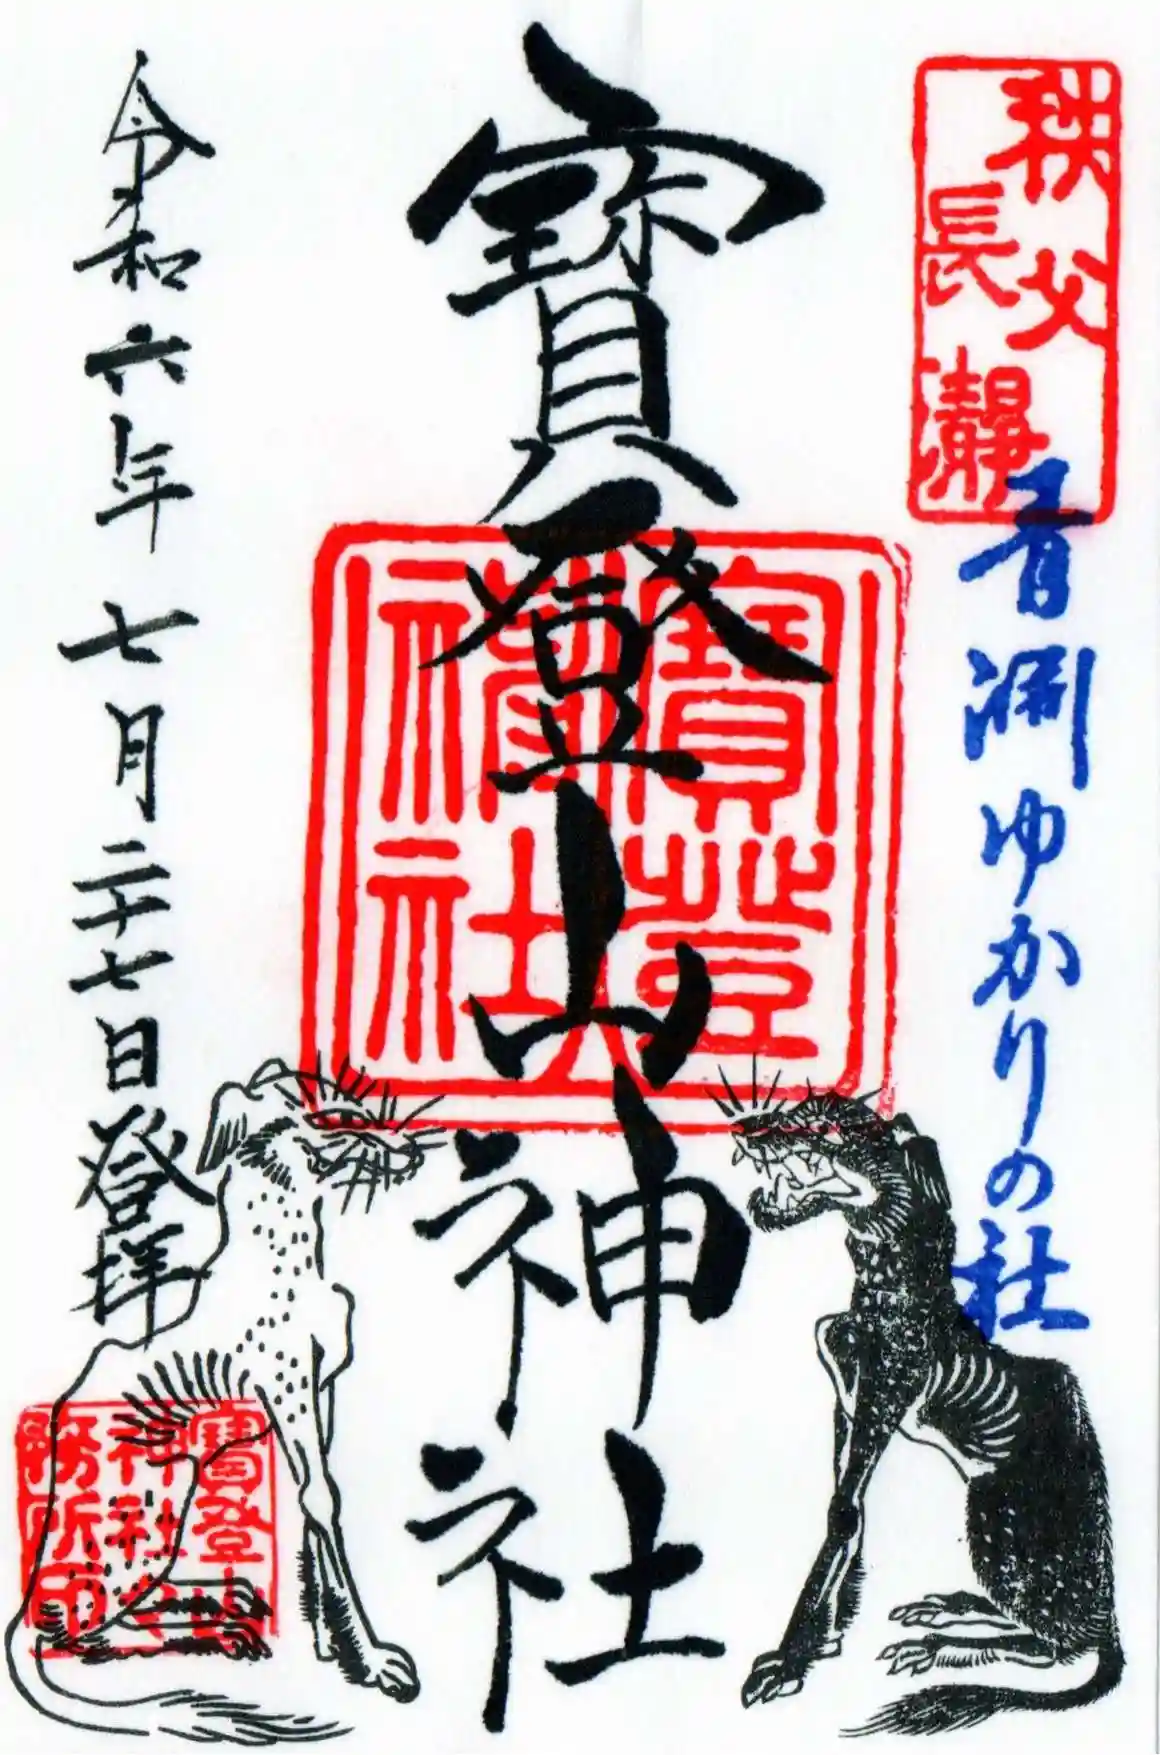 秩父
長瀞
青淵ゆかりの社
寶登山神社
寶登
神社
令和六年七月二十七日登拝
寶登山
神社
務所印